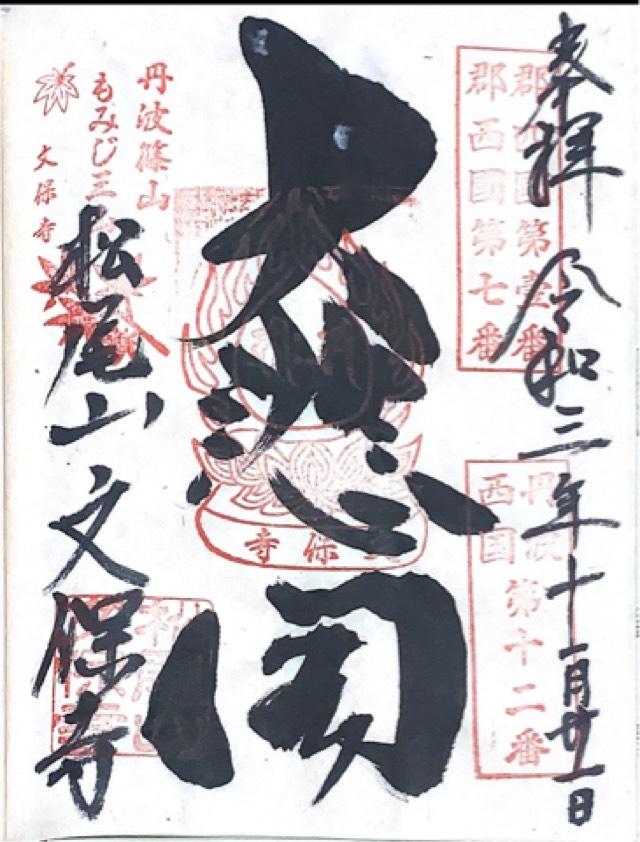 奉拝 令和三年十一月廿一日
郡西国第壹番
郡西國第七番
丹波
西国第十二番
大悲閣
文保寺
丹波篠山
もみじ三
文保寺
松尾山 文保寺